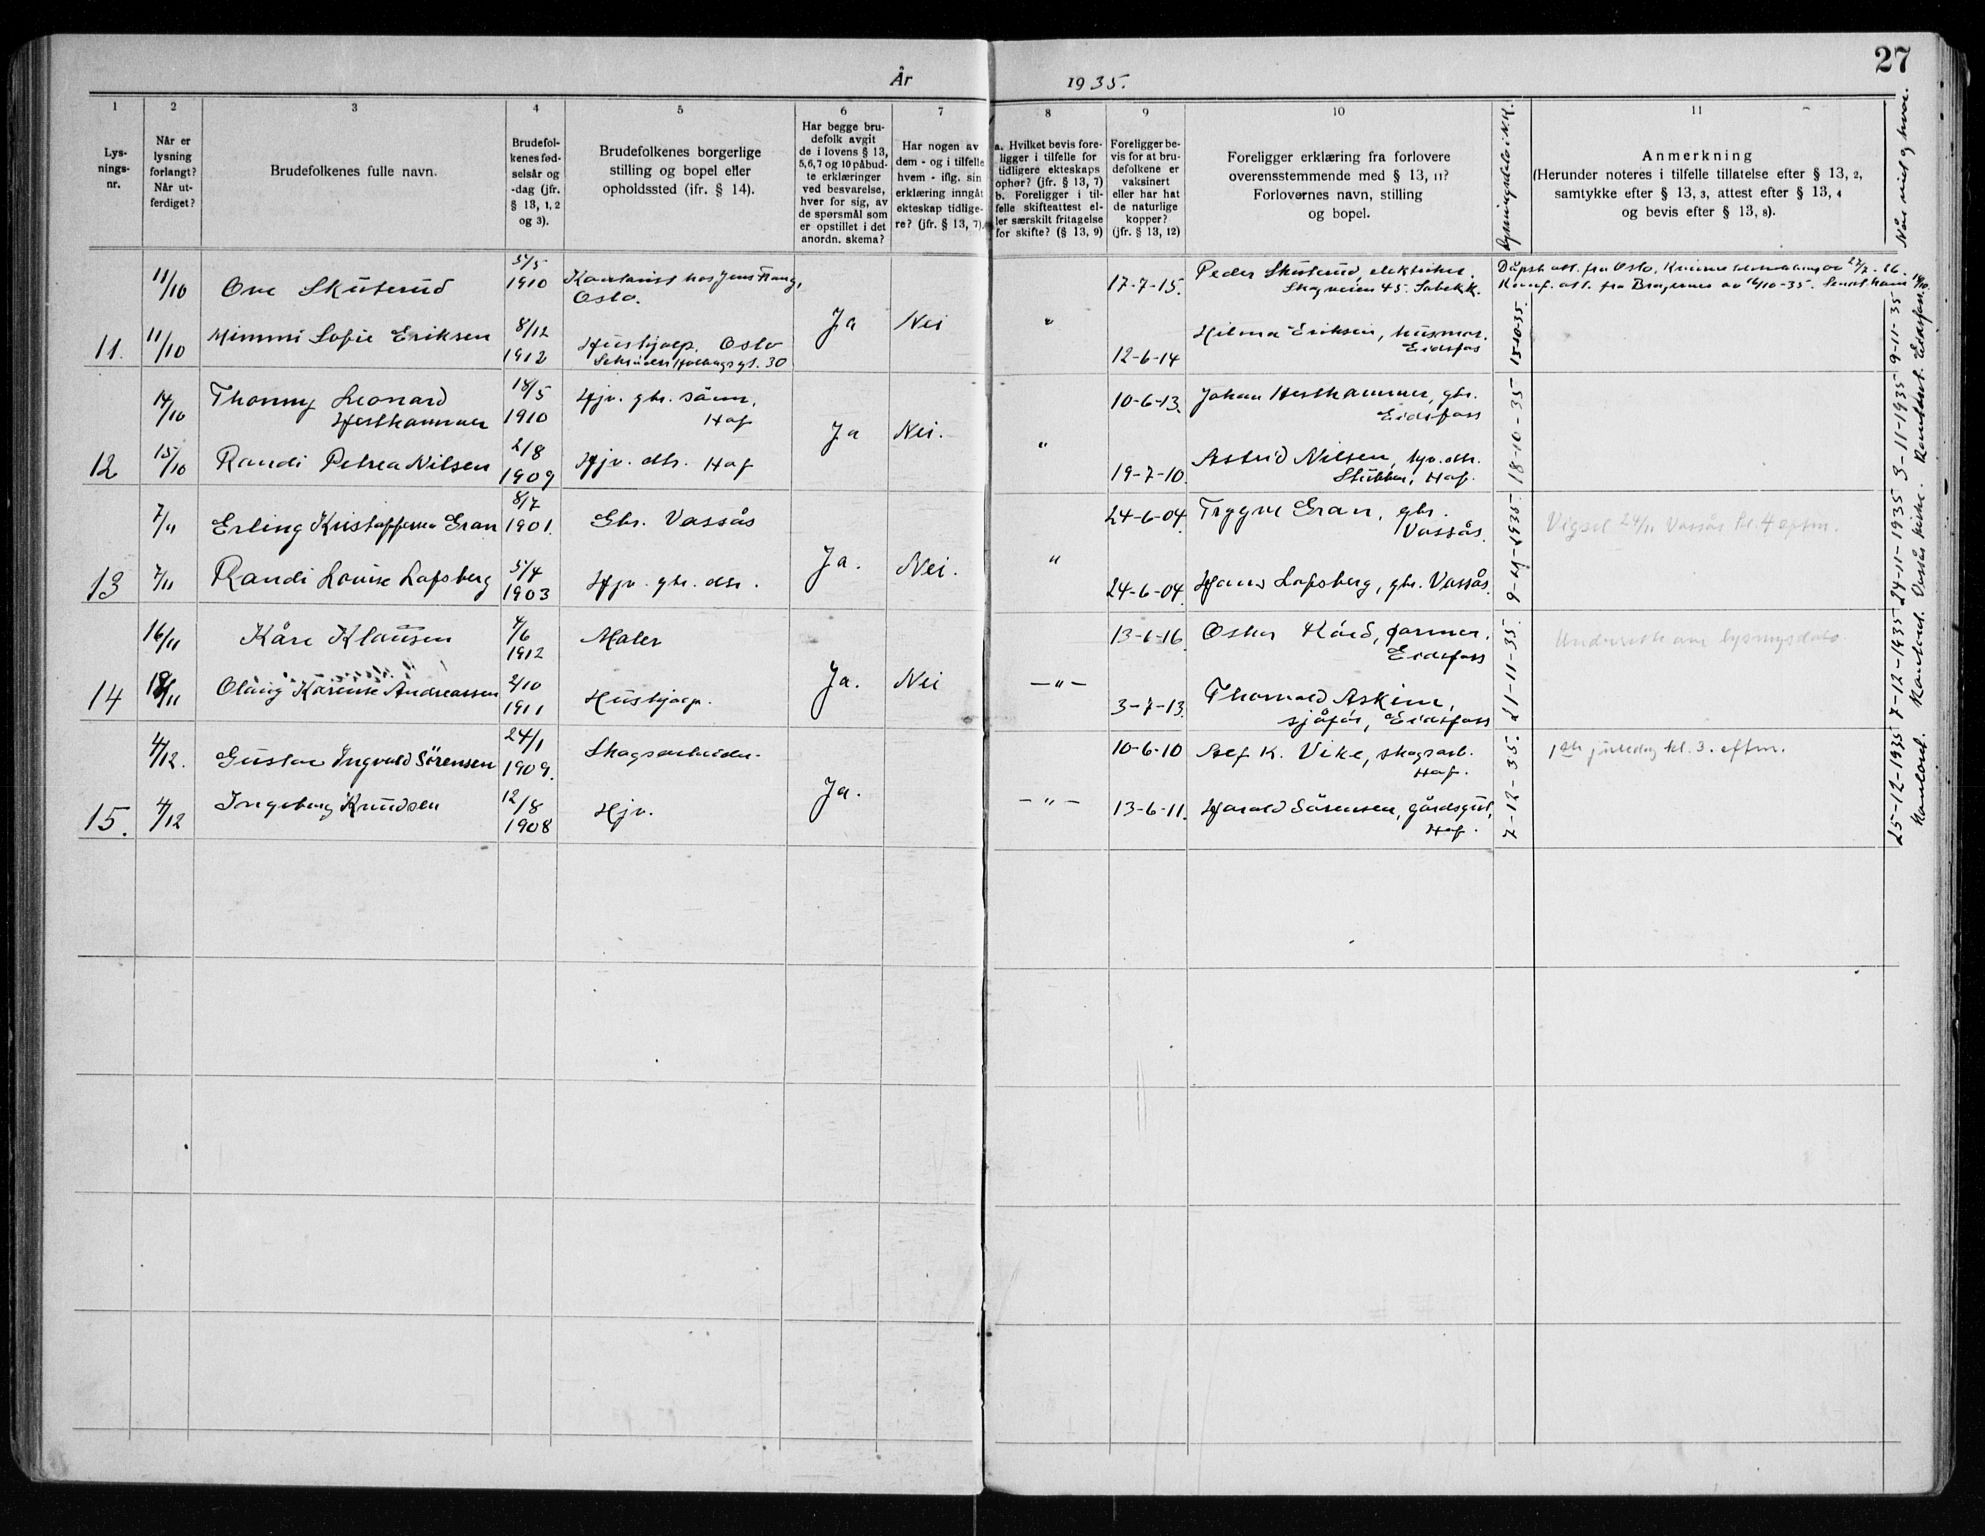 27
År 1935.
1 2 3 4 5 6 7 8 9 10 11
Lys-
nings-
nr.
Når er
lysning
forlangt?
Når ut-
ferdiget?
Brudefolkenes fulle navn.
Brudefol-
kenes fød-
selsår og
-dag (jfr.
§ 13, 1, 2
og 3).
Brudefolkenes borgerlige
stilling og bopel eller
opholdssted (ifr. § 14).
Har begge bru-
defolk avgit
de i lovens § 13,
5,6,7 og 10 påbud-
te erklæringer
ved besvarelse,
hver for sig, av
de spørsmål som
er opstillet i det
anordn. skema?
Har nogen av
dem - og i tilfelle
hvem - iflg. sin
erklæring inngåt
ekteskap tidlige-
re? (jfr. § 13, 7).
a. Hvilket bevis fore-
ligger i tilfelle for
tidligere ekteskaps
ophør? (jfr. § 13, 7)
b. Foreligger i til-
felle skifteattest el-
ler særskilt fritagelse
for skifte? (§ 13, 9)
Foreligger be-
vis for at bru-
defolkene er
vaksinert
eller har hat
de naturlige
kopper?
(jfr. § 13, 12)
Foreligger erklæring fra forlovere
overensstemmende med § 13, 11?
Forlovernes navn, stilling
og bopel.
Lysningsdato i N.K.
Anmerkning
(Herunder noteres i tilfelle tillatelse efter § 13, 2,
samtykke efter § 13, 3, attest efter § 13, 4
og bevis efter § 13, 8).
Når viet og hvor.
11/10 Ove Skuterud 5/5 1910 Kontorist hos Jens
Oslo. 17-7-15. Peder Skuterud, elektriker.
Skogveien 45. Dåpsatt. fra Oslo,
Konf. att. fra Bragernes av 16/10-35.
11. 11/10 Mimmi Sofie Eriksen 8/12 1912 Hushjælp. Oslo
gt. 30 Ja Nei " 12-6-14 Hilma Eriksen, husmor.
Eidsfos 15-10-35 9-11-35
14/10 Thonny Leonard
Hesthammer 18/5 1910 Hjv. gbr. sønn,
Hof 10-6-13. Johan Hesthammer, gbr.
Eidsfoss
12 15/10 Randi Petrea Nilsen 2/8 1909 Hjv. dtr. Hof Ja Nei. " 19-7-10. Astrid Nilsen, hjv. dtr.
Hof. 18-10-35 3-11-1935
7/11 Erling Gran 8/7 1901. Gbr. Vassås 24-6-04. Trygve Gran, gbr.
Vassås. Vigsel 24/11 Vassås kl. 4 eptm.
13 7/11 Randi Louise Lofsberg 5/4 1903 Hjv. gbr. dtr. Ja. Nei. " 24-6-04. Hans Lofsberg, gbr. Vassås. 24-11-1935 Vassås kirke.
16/11 Kåre Klausen 4/6 1912 Maler 13-1-16. Oskar farmer.
Eidsfoss
14 18/11 Olaug Karense Andreassen 2/10 1911 Hushjælp. Ja. Nei -"- 3-7-13. Thorvald Askim,
sjåfør, Eidsfoss 21-11-35. 7-12-1935
4/12. Gustav Ingvald Sörensen 24/1 1909. Skogsarbeider 10-6-10 Alf K. Vike, skogsarb.
Hof. 1ste juledag kl. 3. eftm.
15. 4/12 Ingeborg Knudsen 12/8 1908 Hjv. Ja. -"- 13-6-11. Harald Sörensen, gårdsgut,
Hof. 7-12-35. 25-12-1935